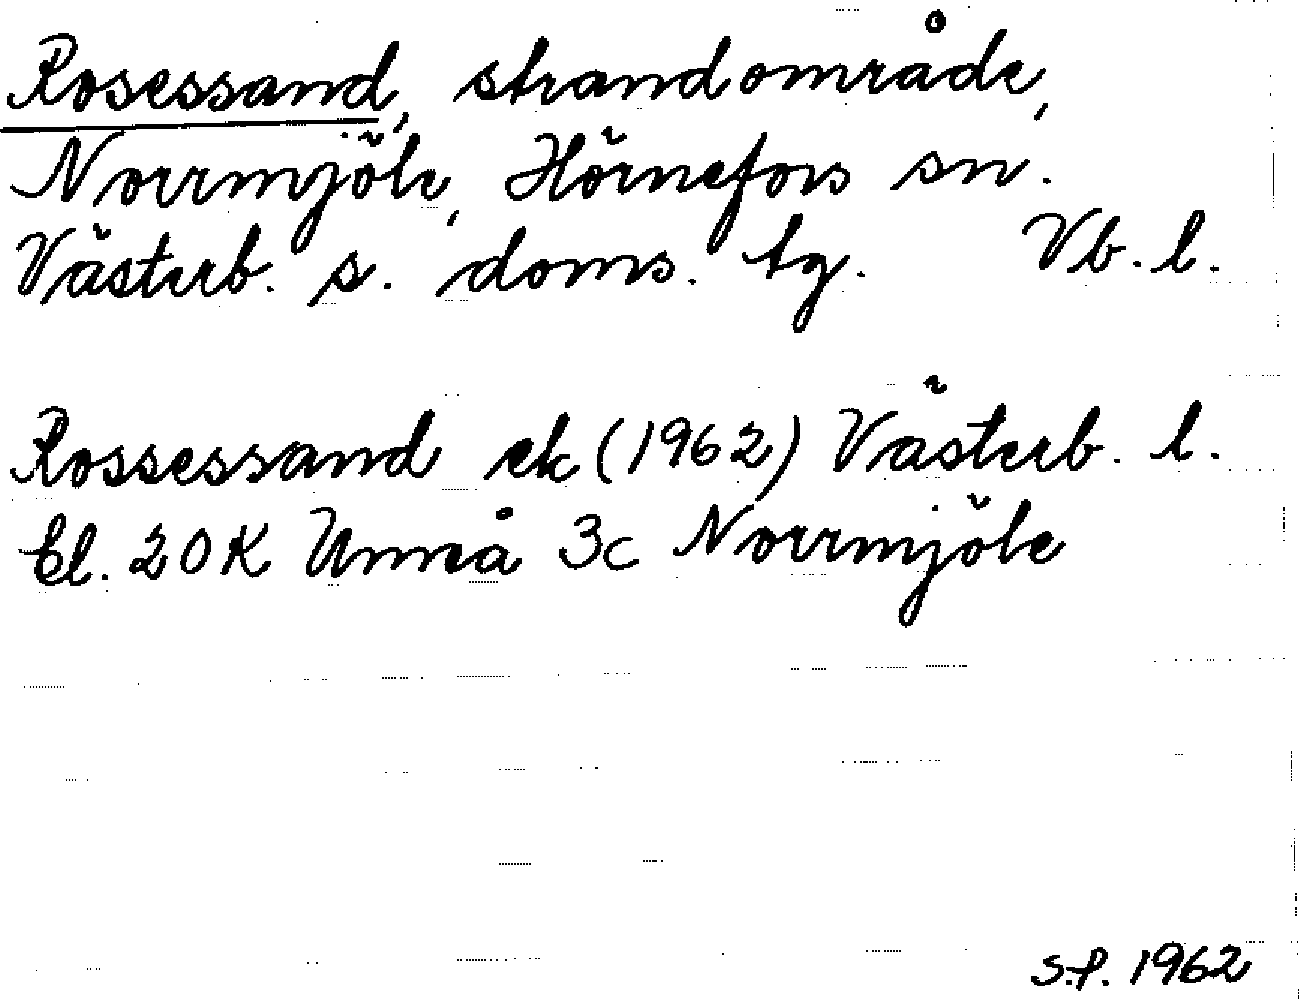 Rosessand, strandområde,
Norrmjöle, Hörnefors sn.
Västerb. s. doms. tg. Vb. l.
Rossessand ek (1962) Västerb. l.
Bl. 20K Umeå 3c Norrmjöle
S.P. 1962